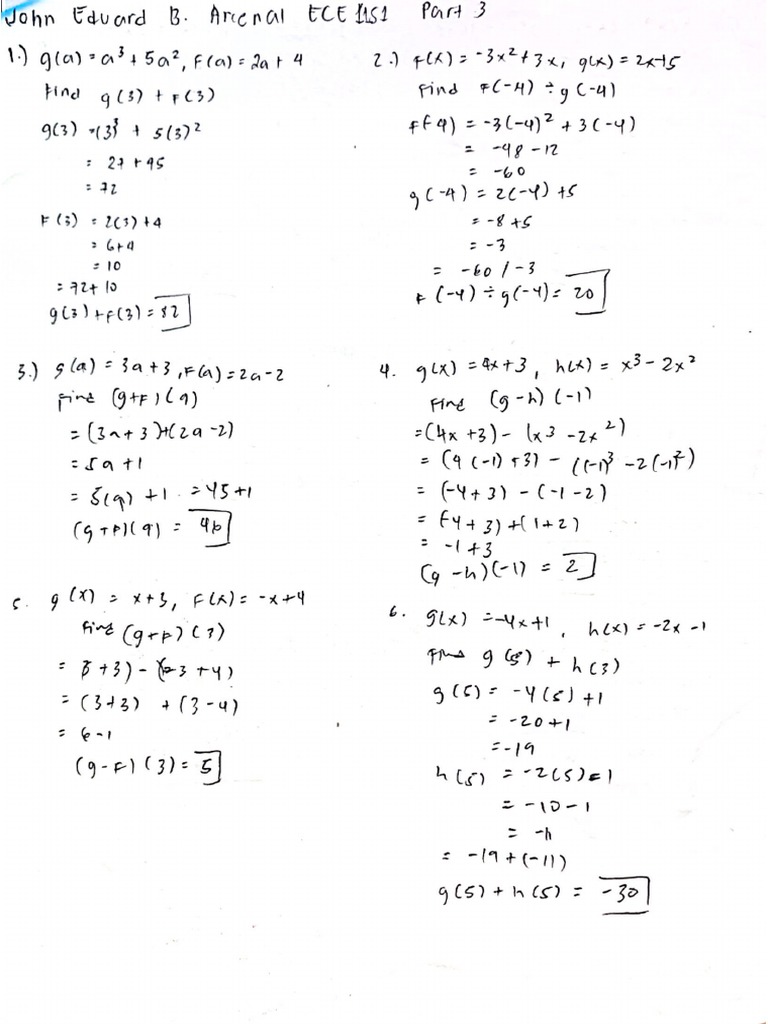 John Eduard B. Arcenal ECE 1151 Part 3
1.) g(a) = a³ + 5a², F(a) = 2a + 4
Find g(3) + F(3)
g(3) = (3)³ + 5(3)²
= 27 + 45
= 72
F(3) = 2(3) + 4
= 6+4
= 10
= 72 + 10
g(3) + F(3) = 82
2.) F(x) = -3x² + 3x, g(x) = 2x+5
Find F(-4) ÷ g(-4)
F(-4) = -3(-4)² + 3(-4)
= -48 - 12
= -60
g(-4) = 2(-4) + 5
= -8 + 5
= -3
= -60 / -3
F(-4) ÷ g(-4) = 20
3.) g(a) = 3a + 3, F(a) = 2a - 2
Find (g+F)(9)
= (3a + 3) + (2a - 2)
= 5a + 1
= 5(9) + 1 = 45 + 1
(g+F)(9) = 46
4. g(x) = 4x + 3, h(x) = x³ - 2x²
Find (g-h)(-1)
= (4x + 3) - (x³ - 2x²)
= (4(-1) + 3) - ((-1)³ - 2(-1)²)
= (-4 + 3) - (-1 - 2)
= (-4 + 3) + (1 + 2)
= -1 + 3
(g - h)(-1) = 2
5. g(x) = x+3, F(x) = -x+4
Find (g-F)(3)
= (3+3) - (-3+4)
= (3+3) + (3-4)
= 6-1
(g-F)(3) = 5
6. g(x) = -4x+1, h(x) = -2x-1
Find g(5) + h(3)
g(5) = -4(5) + 1
= -20+1
= -19
h(5) = -2(5) - 1
= -10 - 1
= -11
= -19 + (-11)
g(5) + h(5) = -30